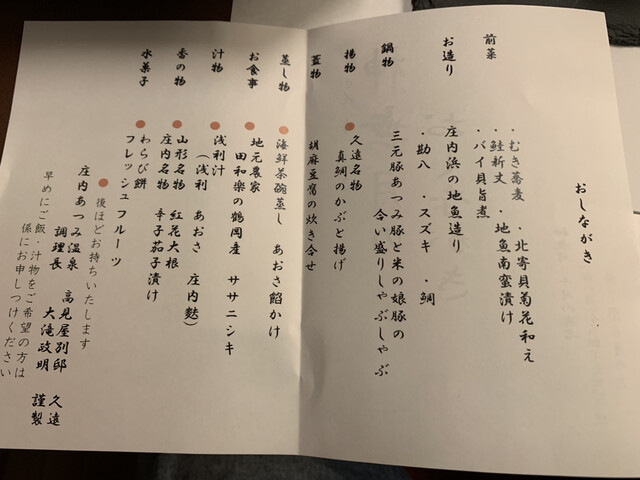 おしながき
前菜
・むき蕎麦 ・北寄貝菊花和え
・鮭新丈 ・地魚南蛮漬け
・バイ貝旨煮
お造り
庄内浜の地魚造り
・勘八 ・スズキ ・鯛
鍋物
三元豚あつみ豚と米の娘豚の
合い盛りしゃぶしゃぶ
揚物
●久遠名物
真鯛のかぶと揚げ
蓋物
胡麻豆腐の炊き合せ
蒸し物
●海鮮茶碗蒸し あおさ餡かけ
お食事
●地元農家
田和楽の鶴岡産 ササニシキ
汁物
●浅利汁
(浅利 あおさ 庄内麩)
香の物
●山形名物 紅花大根
庄内名物 辛子茄子漬け
水菓子
●わらび餅
フレッシュフルーツ
●後ほどお持ちいたします
庄内あつみ温泉 高見屋別邸 久遠
調理長 大滝政明 謹製
早めにご飯・汁物をご希望の方は
係にお申しつけください